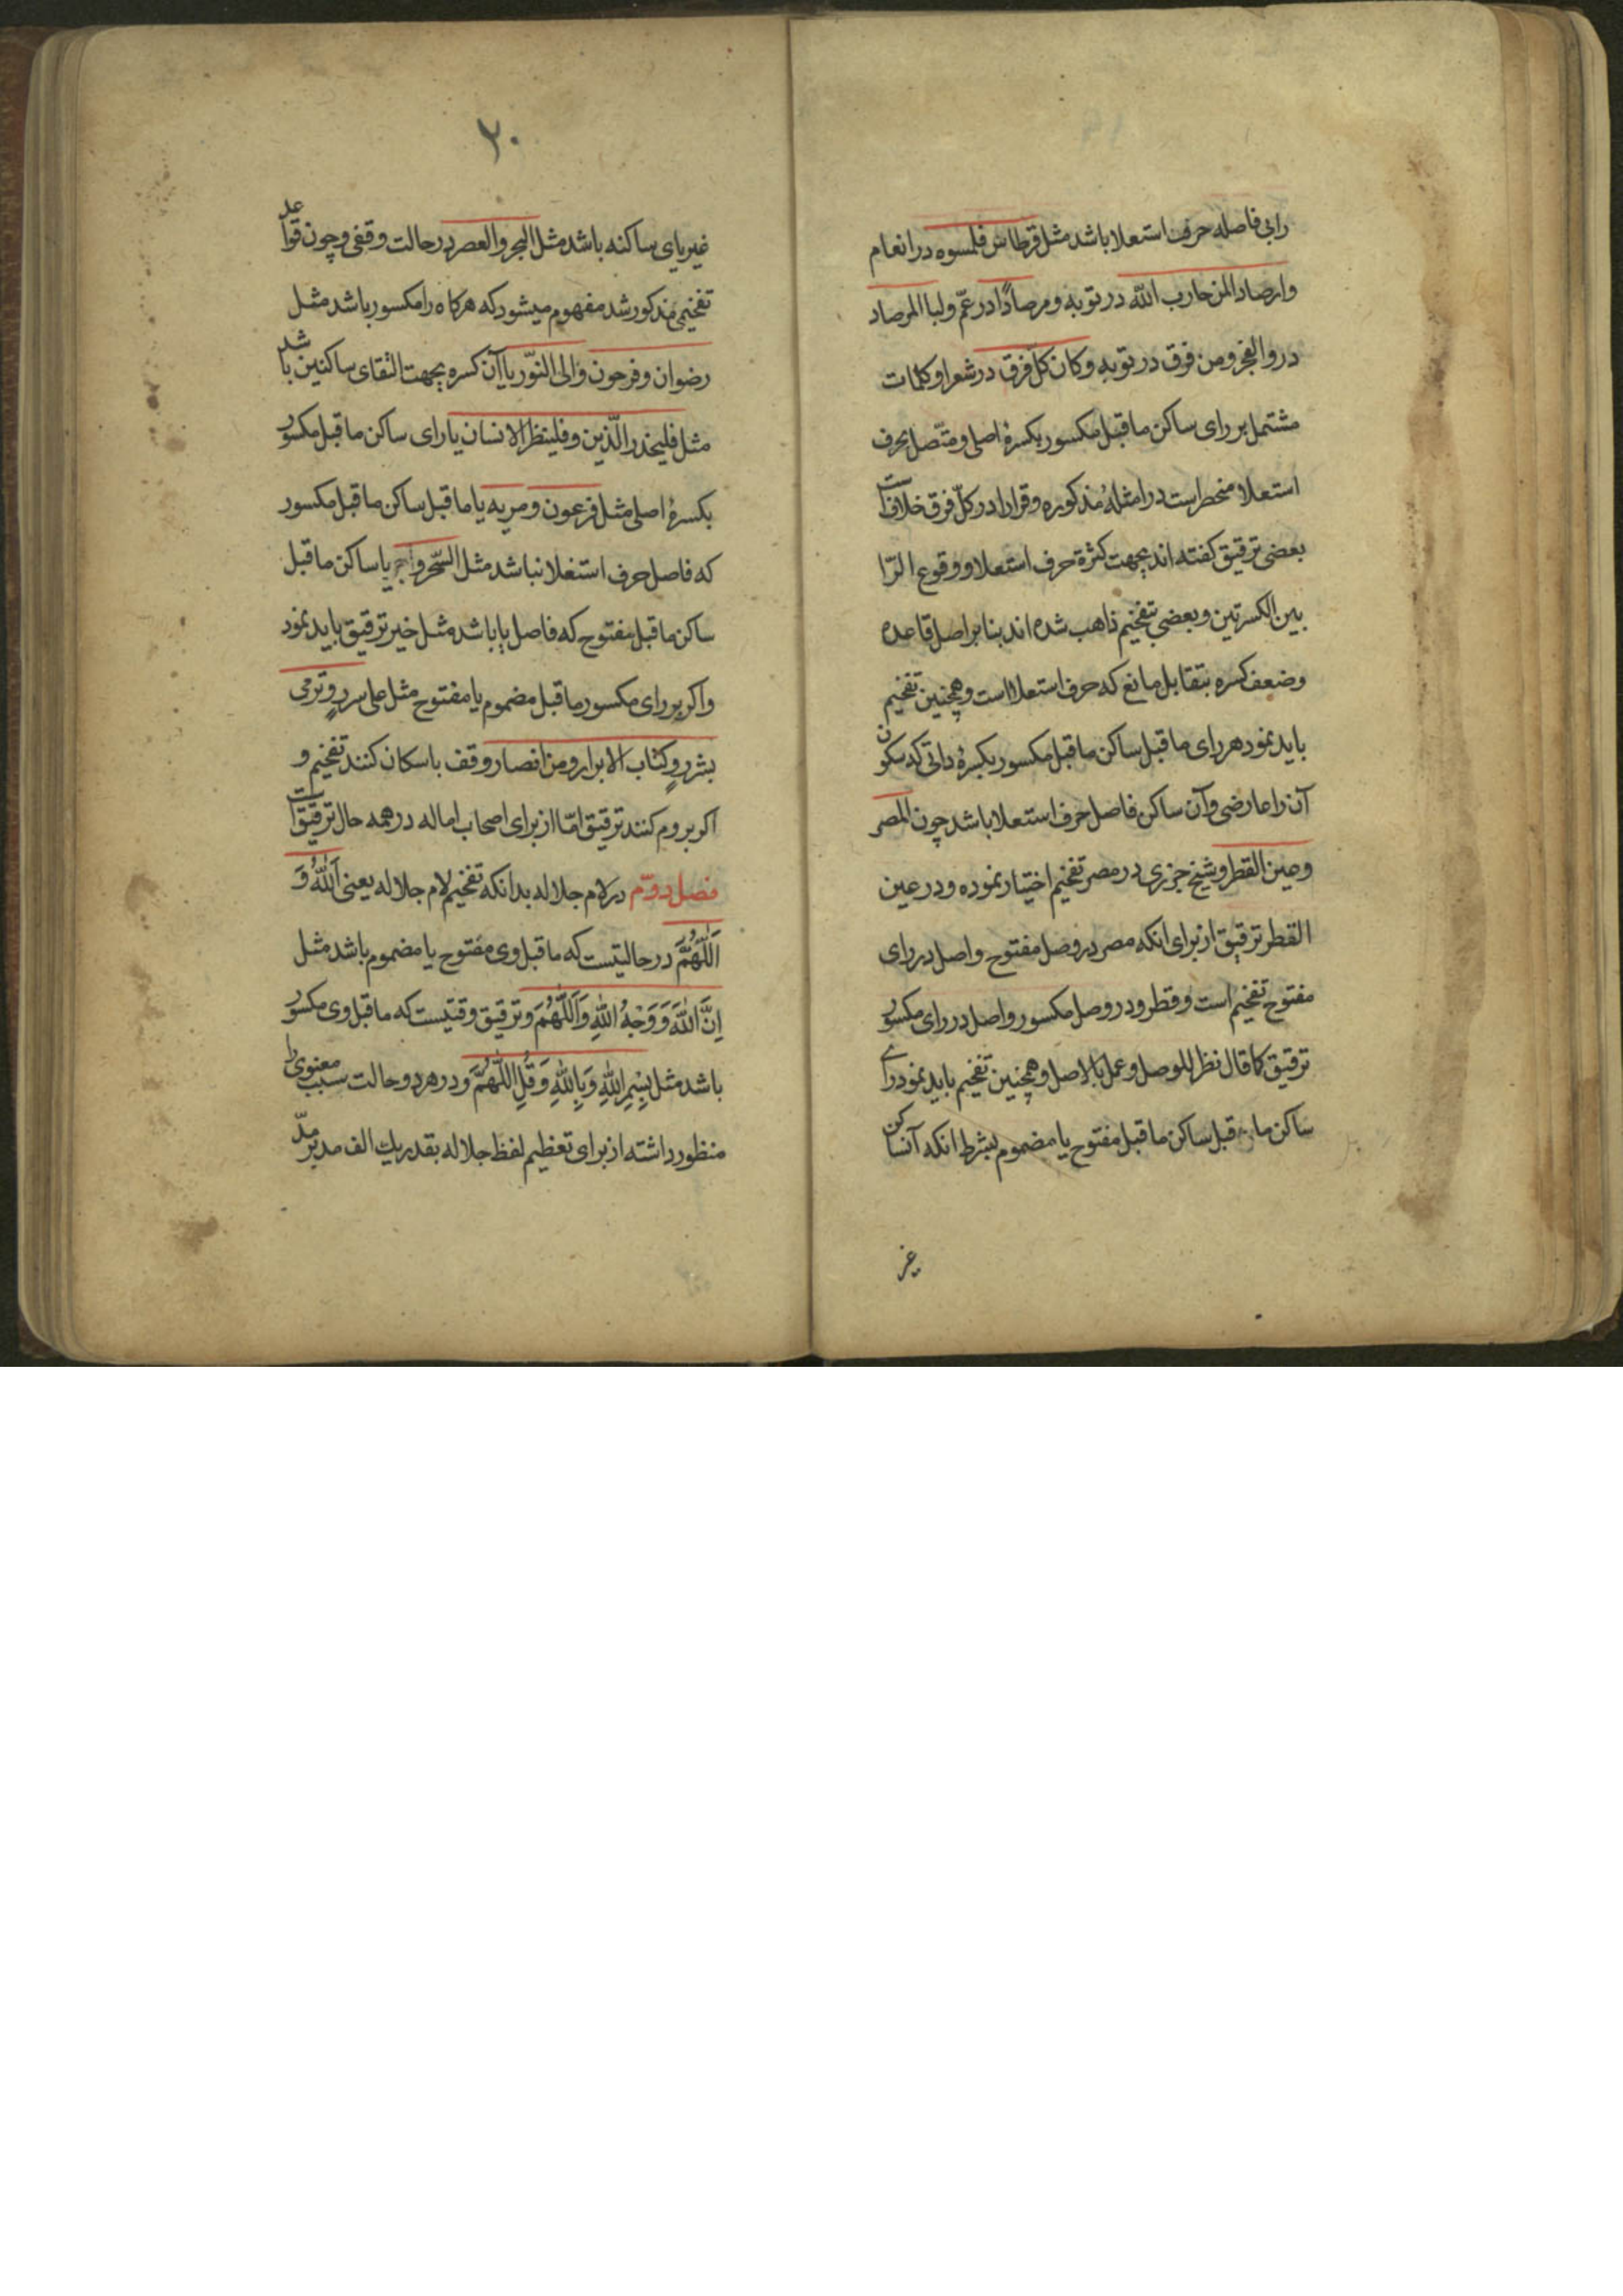 رابی فاصله حرف استعلا باشد مثل قرطاس فلمسوه در انعام
وارصادا لمن حارب الله در توبه ومرصادًا در عمّ ولبا المرصاد
در والفجر ومن فرق در توبه وكان كلّ فرق در شعرا وكلمات
مشتمل بر رای ساكن ماقبل مكسور بكسرهٔ اصلی ومتّصل بحرف
استعلا منحصر است در امثلهٔ مذكوره وقرا را در كلّ فرق خلافست
بعضی ترقیق گفته اند بجهت كثرة حرف استعلا ووقوع الرّا
بین الكسرتین وبعضی بتفخیم ذاهب شده اند بنا بر اصل قاعده
وضعف كسره بتقابل مانع كه حرف استعلا است وهمچنین تفخیم
باید نمود هر رای ماقبل ساكن ماقبل مكسور بكسرهٔ ذاتی كه سكون
آن را عارضی وآن ساكن فاصل حرف استعلا باشد چون المصر
وعین القطر وشیخ جزری در مصر تفخیم اختیار نموده ودر عین
القطر ترقیق از برای انكه مصر در وصل مفتوح واصل در رای
مفتوح تفخیم است وقطر ودر وصل مكسور واصل در رای مكسور
ترقیق كما قال نظرا للوصل وعملا بالاصل وهمچنین تفخیم باید نمود رای
ساكن ما قبل ساكن ماقبل مفتوح یا مضموم بشرط انكه آن ساكن
غیر
۲۰
غیر یای ساكنه باشد مثل البحر والعصر در حالت وقفی وچون قواعد
تفخیمی مذكور شد مفهوم میشود كه هركاه را مكسور باشد مثل
رضوان وفرحون والی النّور یا آن كسره بجهت التقای ساكنین باشد
مثل فلیحذر الّذین وفلینظر الانسان یا رای ساكن ماقبل مكسور
بكسرهٔ اصلی مثل فرعون ومریه یا ماقبل ساكن ماقبل مكسور
كه فاصل حرف استعلا نباشد مثل السّحر و یا ساكن ماقبل
ساكن ماقبل مفتوح كه فاصل یا باشد مثل خیر ترقیق باید نمود
واكر بر رای مكسور ماقبل مضموم یا مفتوح مثل علی سررٍ وترمی
بشررٍ وكتاب الابرار ومن انصار وقف باسكان كنند تفخیم و
اكر بروم كنند ترقیق امّا از برای اصحاب اماله در همه حال ترقیقست
فصل دوّم در لام جلاله بدانكه تفخیم لام جلاله یعنی اَللّٰهُ وَ
اَللّٰهُمَّ در حالتیست كه ماقبل وی مفتوح یا مضموم باشد مثل
اِنَّ اللّٰهَ وَوَجْهُ اللّٰهِ وَاَللّٰهُمَّ وترقیق وقتیست كه ماقبل وی مكسور
باشد مثل بِسْمِ اللّٰهِ وَبِاللّٰهِ وَقُلِ اللّٰهُمَّ ودر هر دو حالت سبب معنوی را
منظور داشته از برای تعظیم لفظ جلاله بقدر یك الف مد بر مدّ